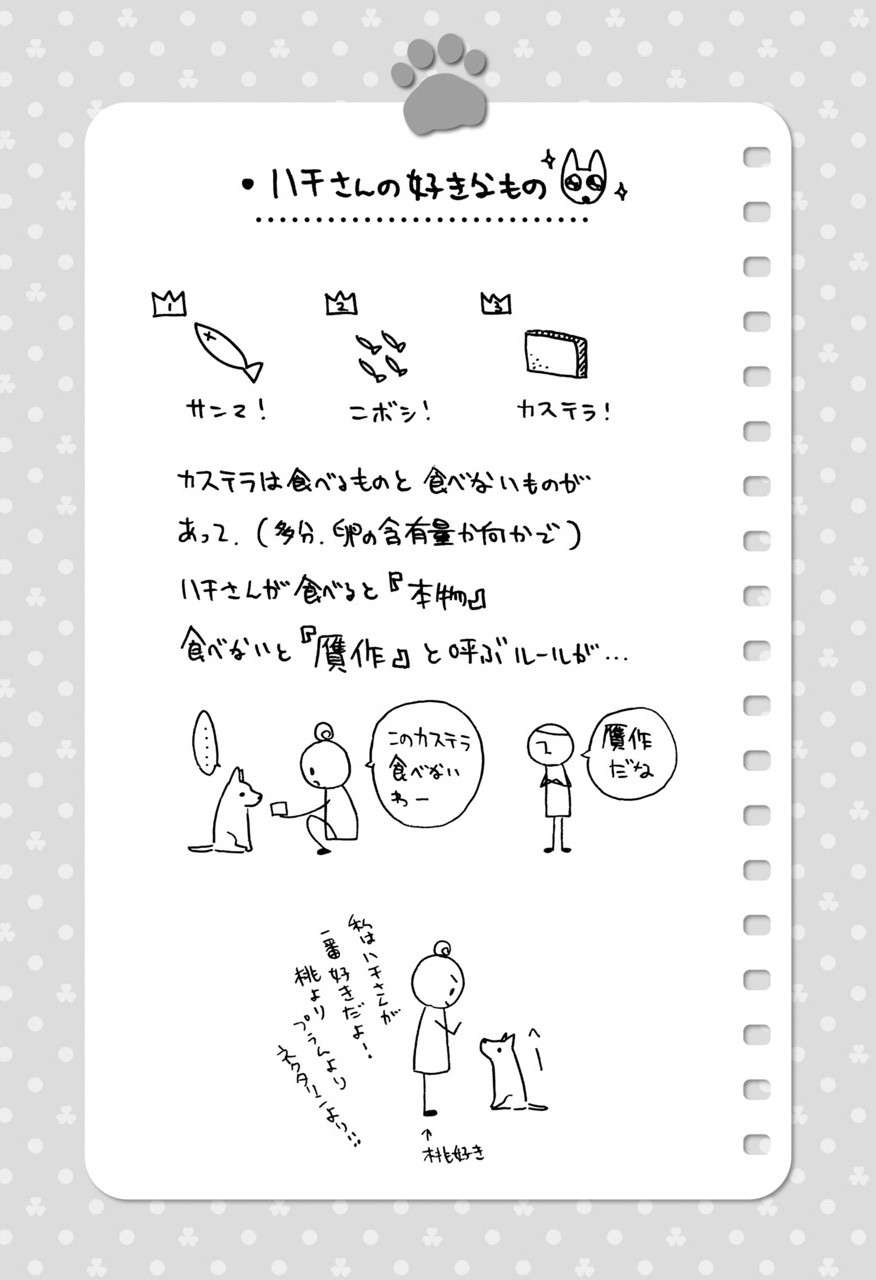 ・ハチさんの好きなもの
1
サンマ！
2
ニボシ！
3
カステラ！
カステラは食べるものと食べないものが
あって、(多分、卵の含有量か何かで)
ハチさんが食べると『本物』
食べないと『贋作』と呼ぶルールが…
……
このカステラ
食べない
わー
贋作
だね
私はハチさんが
一番好きだよ！
桃より
プラムより
ネクタリンより!!
へー
↑
桃好き